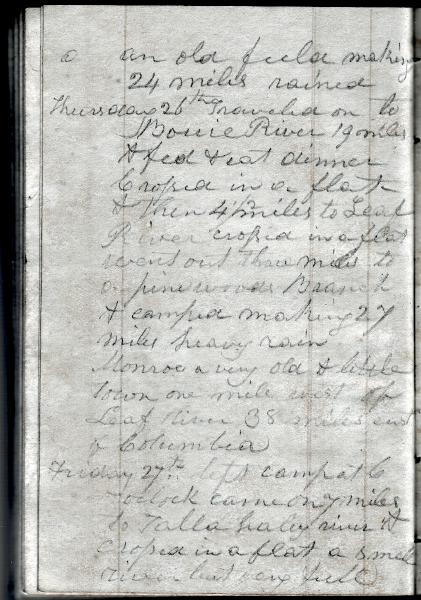 a an old field making
24 miles rained
Thursday 26th Traveled on to
Bouie River 19 miles
& fed & eat dinner
Crosed in a flat
& then 4½ miles to Leaf
River crosed in a flat
went out three miles to
a piney woods Branch
& camped making 27
miles heavy rain
Monroe a very old & little
town one mile west of
Leaf River 38 miles east
of Columbia
Friday 27th left camp at 6
oclock came on 7 miles
to Talla haley river &
crosed in a flat a small
river but very full